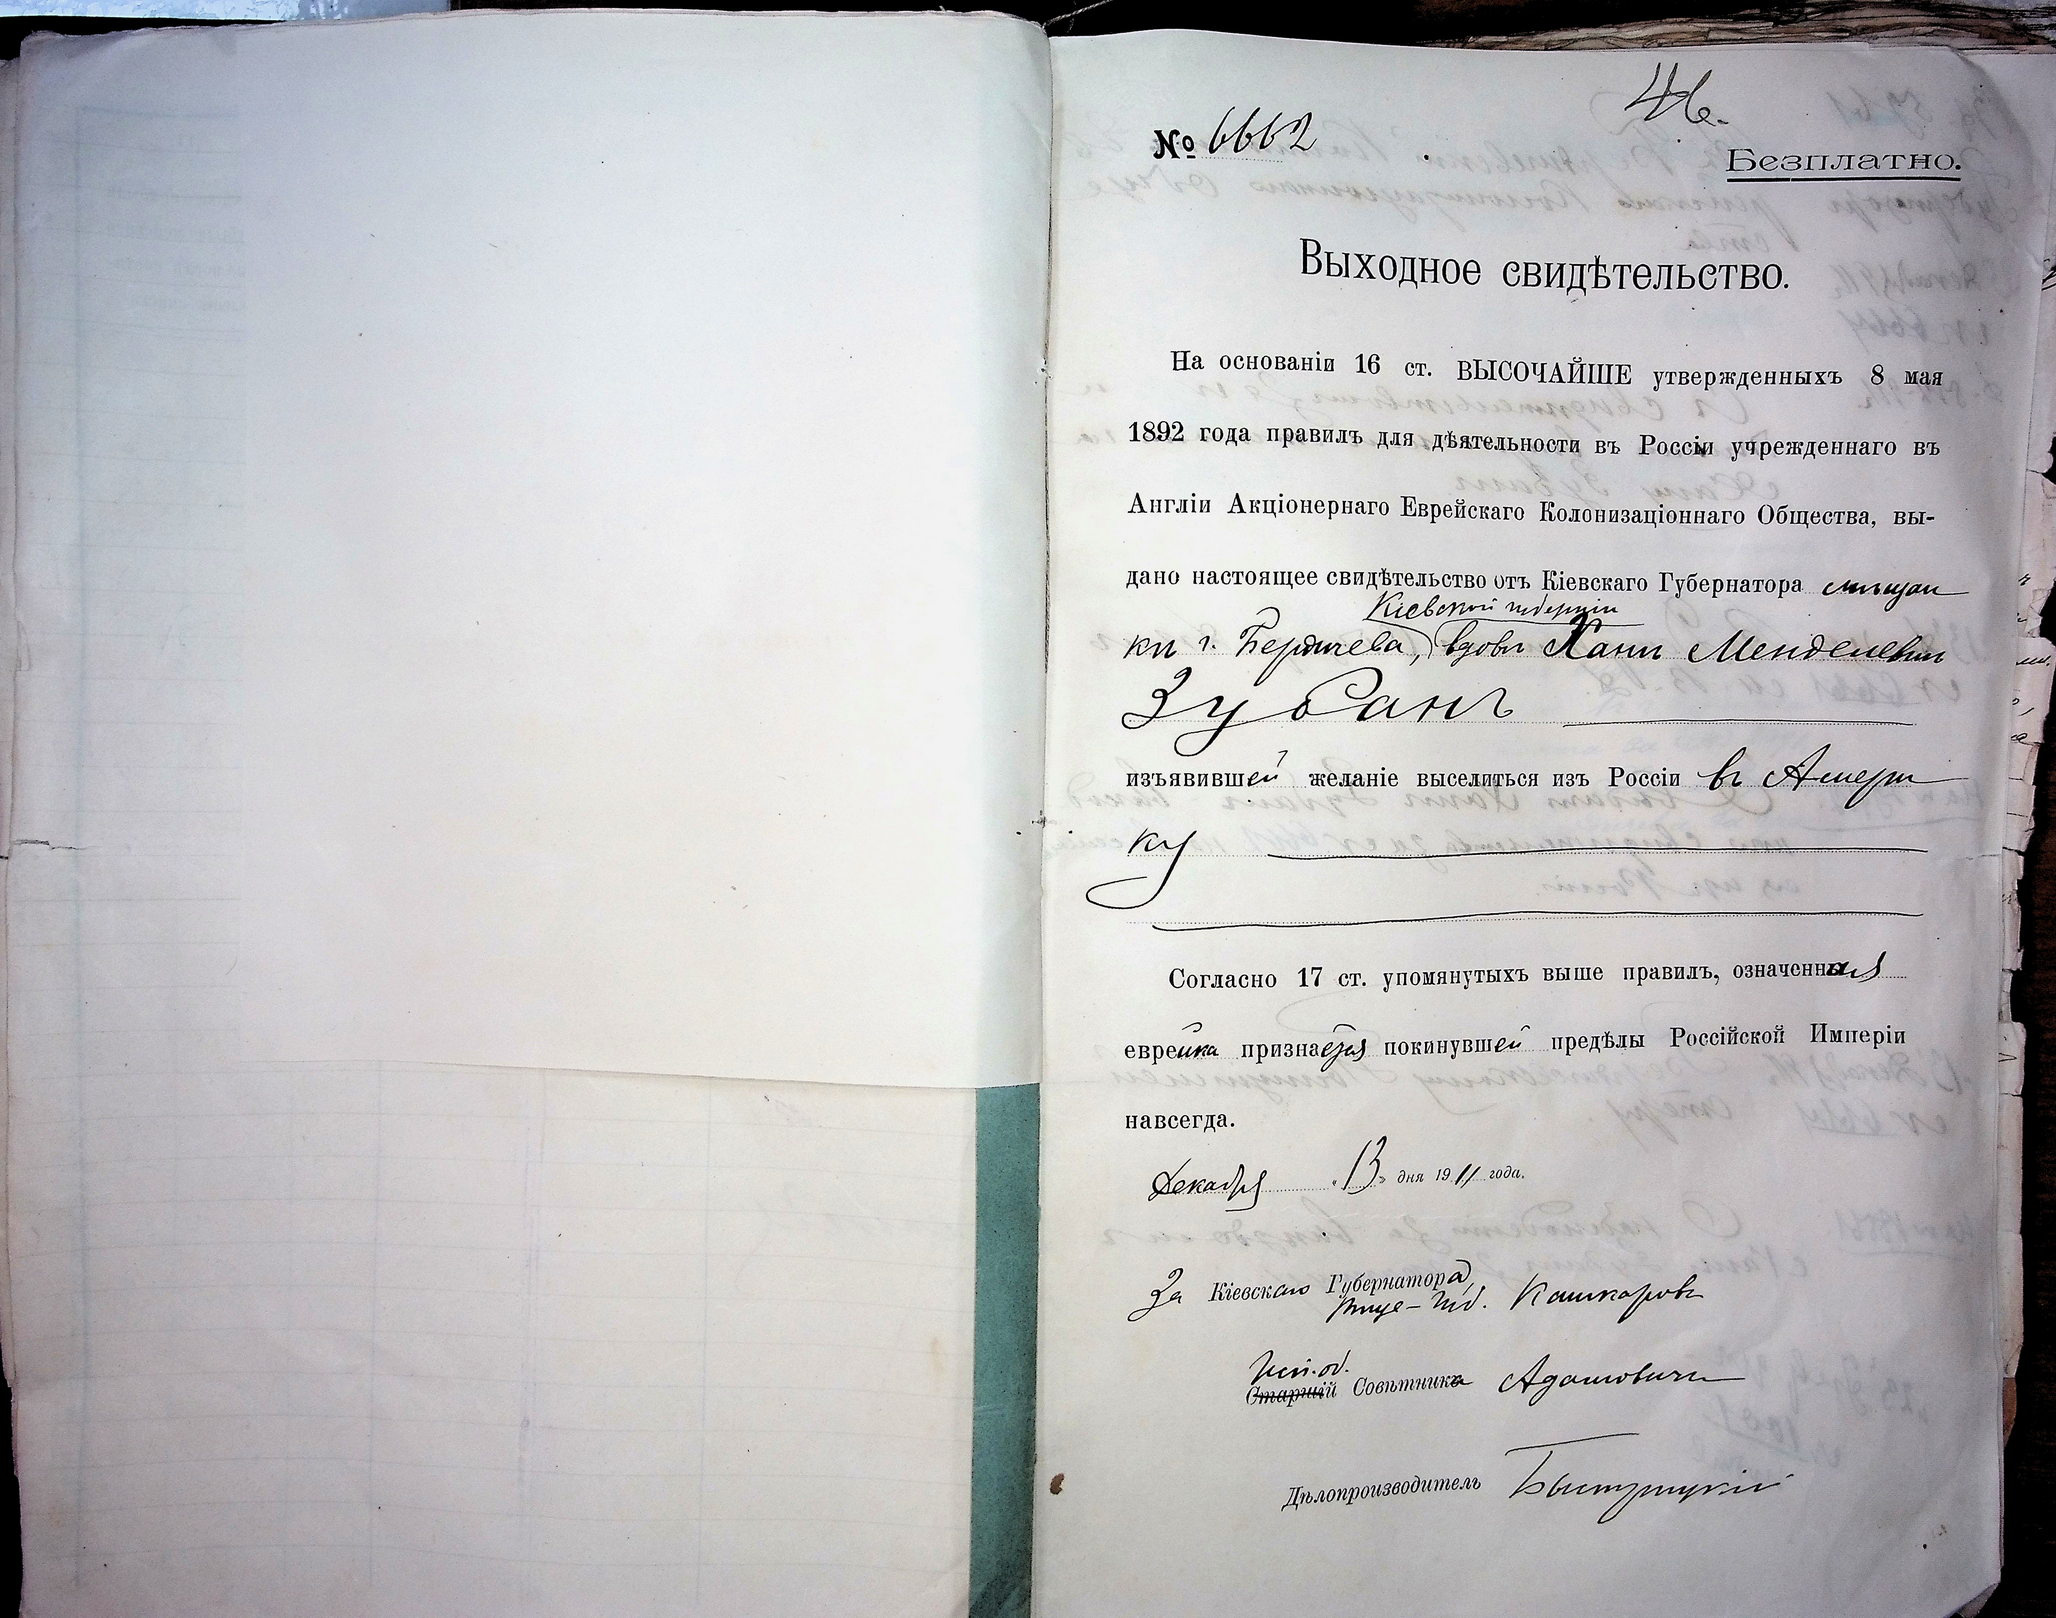 46.
№ 6662
Безплатно.
Выходное свидѣтельство.
На основаніи 16 ст. ВЫСОЧАЙШЕ утвержденныхъ 8 мая
1892 года правилъ для дѣятельности въ Россіи учрежденнаго въ
Англіи Акціонернаго Еврейскаго Колонизаціоннаго Общества, вы-
дано настоящее свидѣтельство отъ Кіевскаго Губернатора мѣщан
Кіевской губерніи
кѣ г. Бердичева, вдовѣ Ханѣ Менделевнѣ
Зубанъ
изъявившей желаніе выселиться изъ Россіи въ Амери
ку
Согласно 17 ст. упомянутыхъ выше правилъ, означенная
еврейка признается покинувшей предѣлы Россійской Имперіи
навсегда.
Декабря „13" дня 1911 года.
За Кіевскаго Губернатора,
Вице-Губ. Кашкаровъ
Исп. об.
Старшій Совѣтника Адамовичъ
Дѣлопроизводитель Быстрицкій